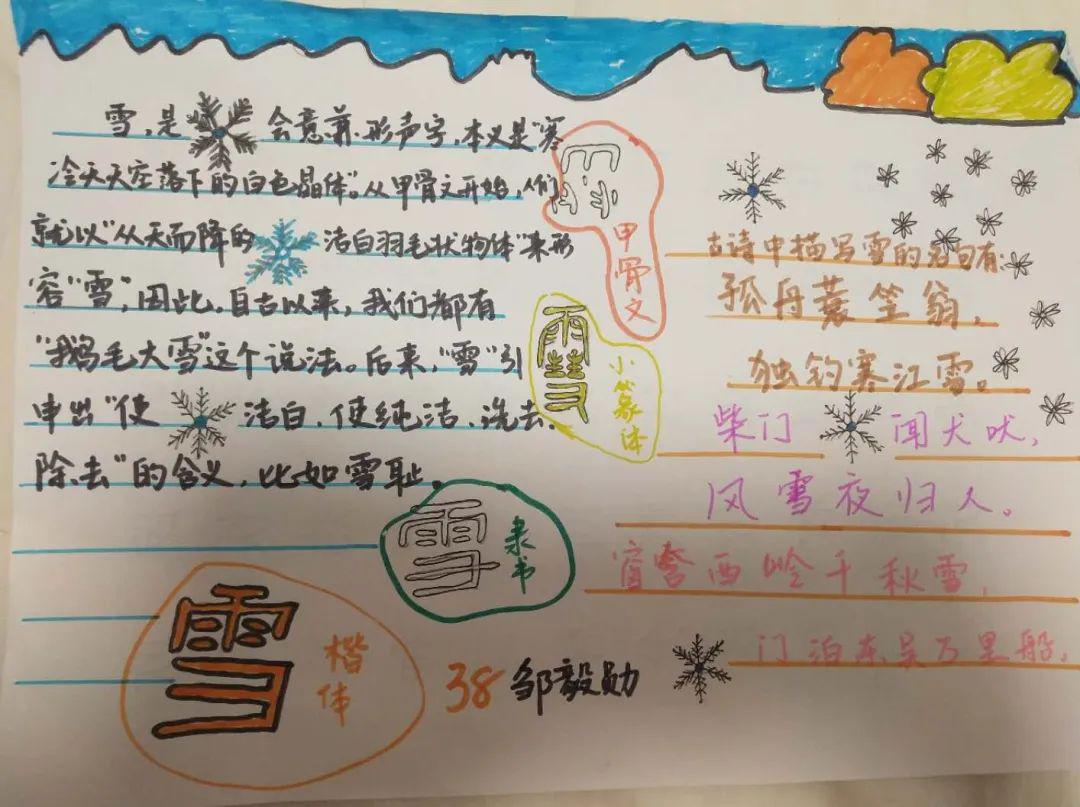 雪,是会意兼形声字,本义是“寒
冷天天空落下的白色晶体”。从甲骨文开始,人们
就以“从天而降的洁白羽毛状物体”来形
容“雪”,因此,自古以来,我们都有
“鹅毛大雪”这个说法。后来,“雪”引
申出“使洁白,使纯洁,洗去,
除去”的含义,比如雪耻。
甲骨文
雪
小篆体
雪
隶书
雪
楷体
38 邹毅勋
古诗中描写雪的名句有:
孤舟蓑笠翁,
独钓寒江雪。
柴门闻犬吠,
风雪夜归人。
窗含西岭千秋雪,
门泊东吴万里船。